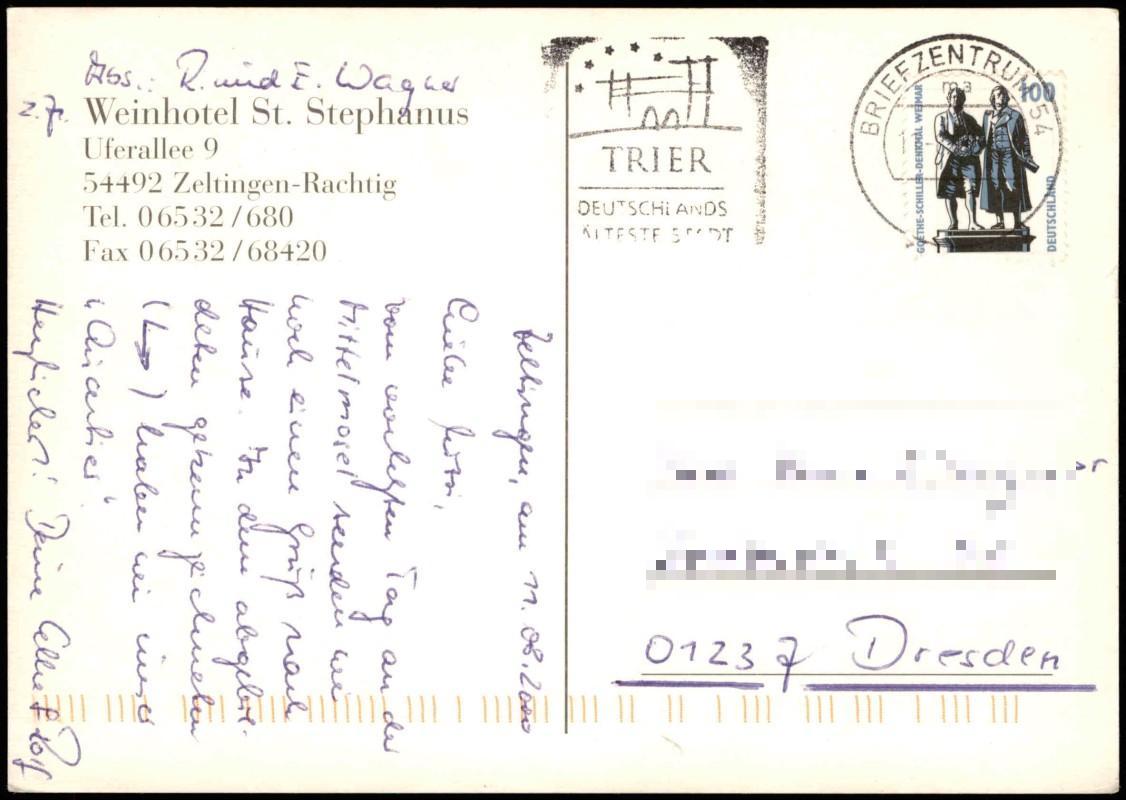 Abs.: R. und E. Wagner
z. Z.
Weinhotel St. Stephanus
Uferallee 9
54492 Zeltingen-Rachtig
Tel. 0 65 32 / 680
Fax 0 65 32 / 68420
TRIER
DEUTSCHLANDS
ÄLTESTE STADT
BRIEFZENTRUM 54
ma
100
GOETHE-SCHILLER-DENKMAL WEIMAR
DEUTSCHLAND
Zeltingen, am 11.08.2000
Liebe
vom vorletzten Tag an der
Mittelmosel senden wir
noch einen Gruß nach
Hause. In dem abgebil-
deten gekennzeichneten
(→) haben wir unser
„Quartier"
Herzlichst! Deine
01237 Dresden